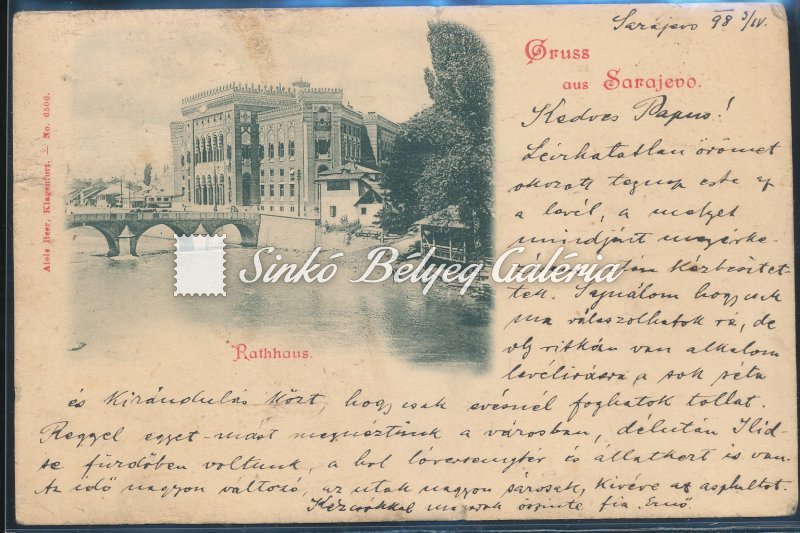 Sarajevo 98 3/IV.
Gruss
aus Sarajevo.
Alois Beer, Klagenfurt. — No. 6506.
Kedves Papus!
Leírhatatlan örömet
okozott tegnap este az
a levél, a melyet
mindjárt megérke-
zés után kézbesítet-
tek. Sajnálom hogy csak
ma válaszolhatok rá, de
oly ritkán van alkalom
levelirásra a sok séta
Sinkó Bélyeg Galéria
Rathhaus.
és Kirándulás közt, hogy csak evésnél foghatok tollat.
Reggel egyet-mást megnéztünk a városban, délután Ilid-
se fürdőben voltunk, a hol lóversenytér és állatkert is van.
Az idő nagyon változó, az utak nagyon sárosak, kivéve az asphaltot.
Kézcsókkal maradok őszinte fia Ernő.